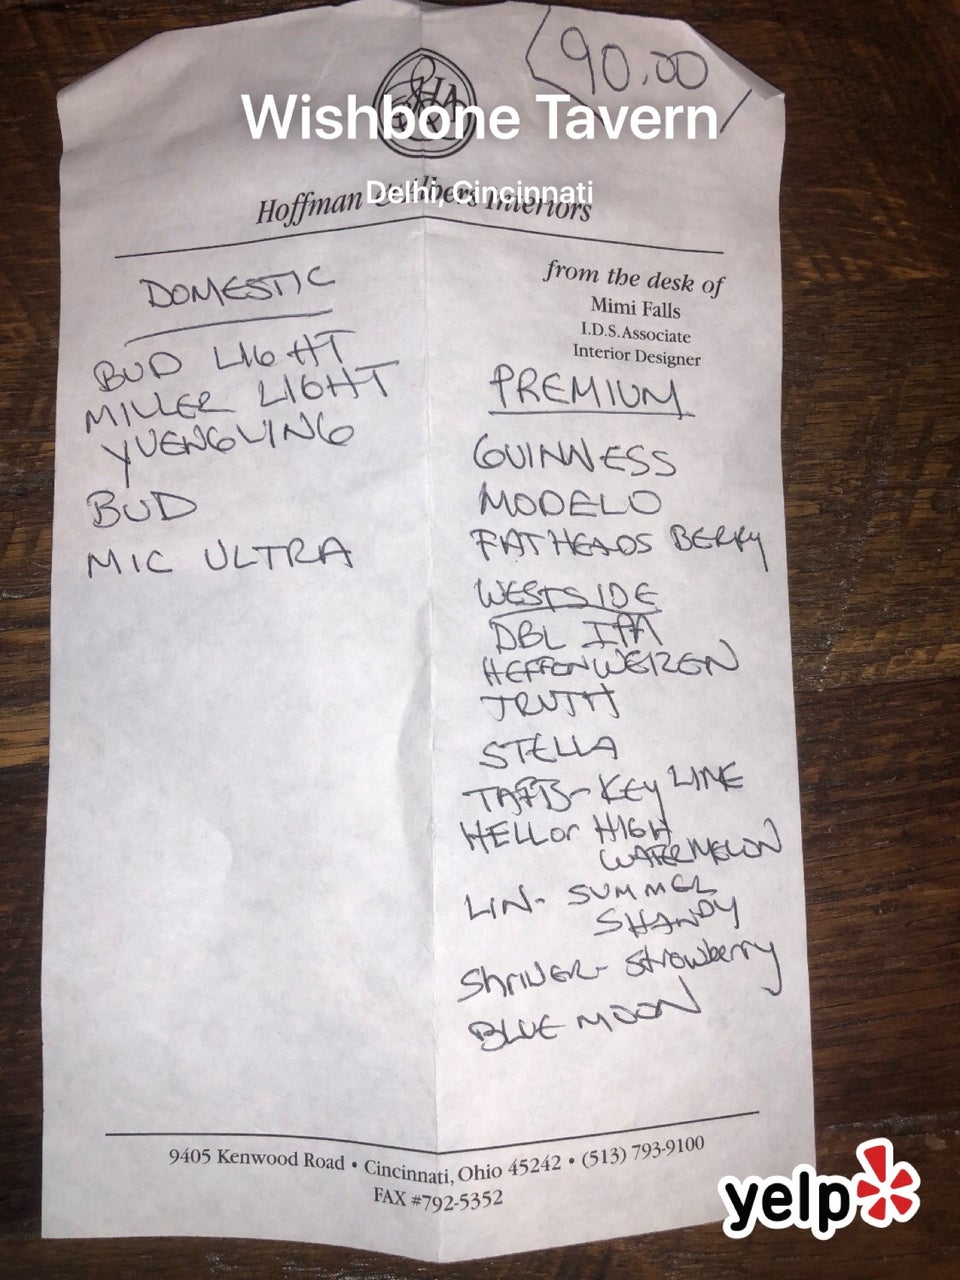 90.00
Wishbone Tavern
Delhi, Cincinnati
Hoffman & Albers Interiors
from the desk of
Mimi Falls
I.D.S. Associate
Interior Designer
DOMESTIC
BUD LIGHT
MILLER LIGHT
YUENGLING
BUD
MIC ULTRA
PREMIUM
GUINNESS
MODELO
FATHEADS BERRY
WESTSIDE
DBL IPA
HEFFENWEIZEN
TRUTH
STELLA
KEY LIME
HELL or HIGH
WATERMELON
LIN- SUMMER
SHANDY
SHRINER- Strawberry
BLUE MOON
9405 Kenwood Road • Cincinnati, Ohio 45242 • (513) 793-9100
FAX #792-5352
yelp